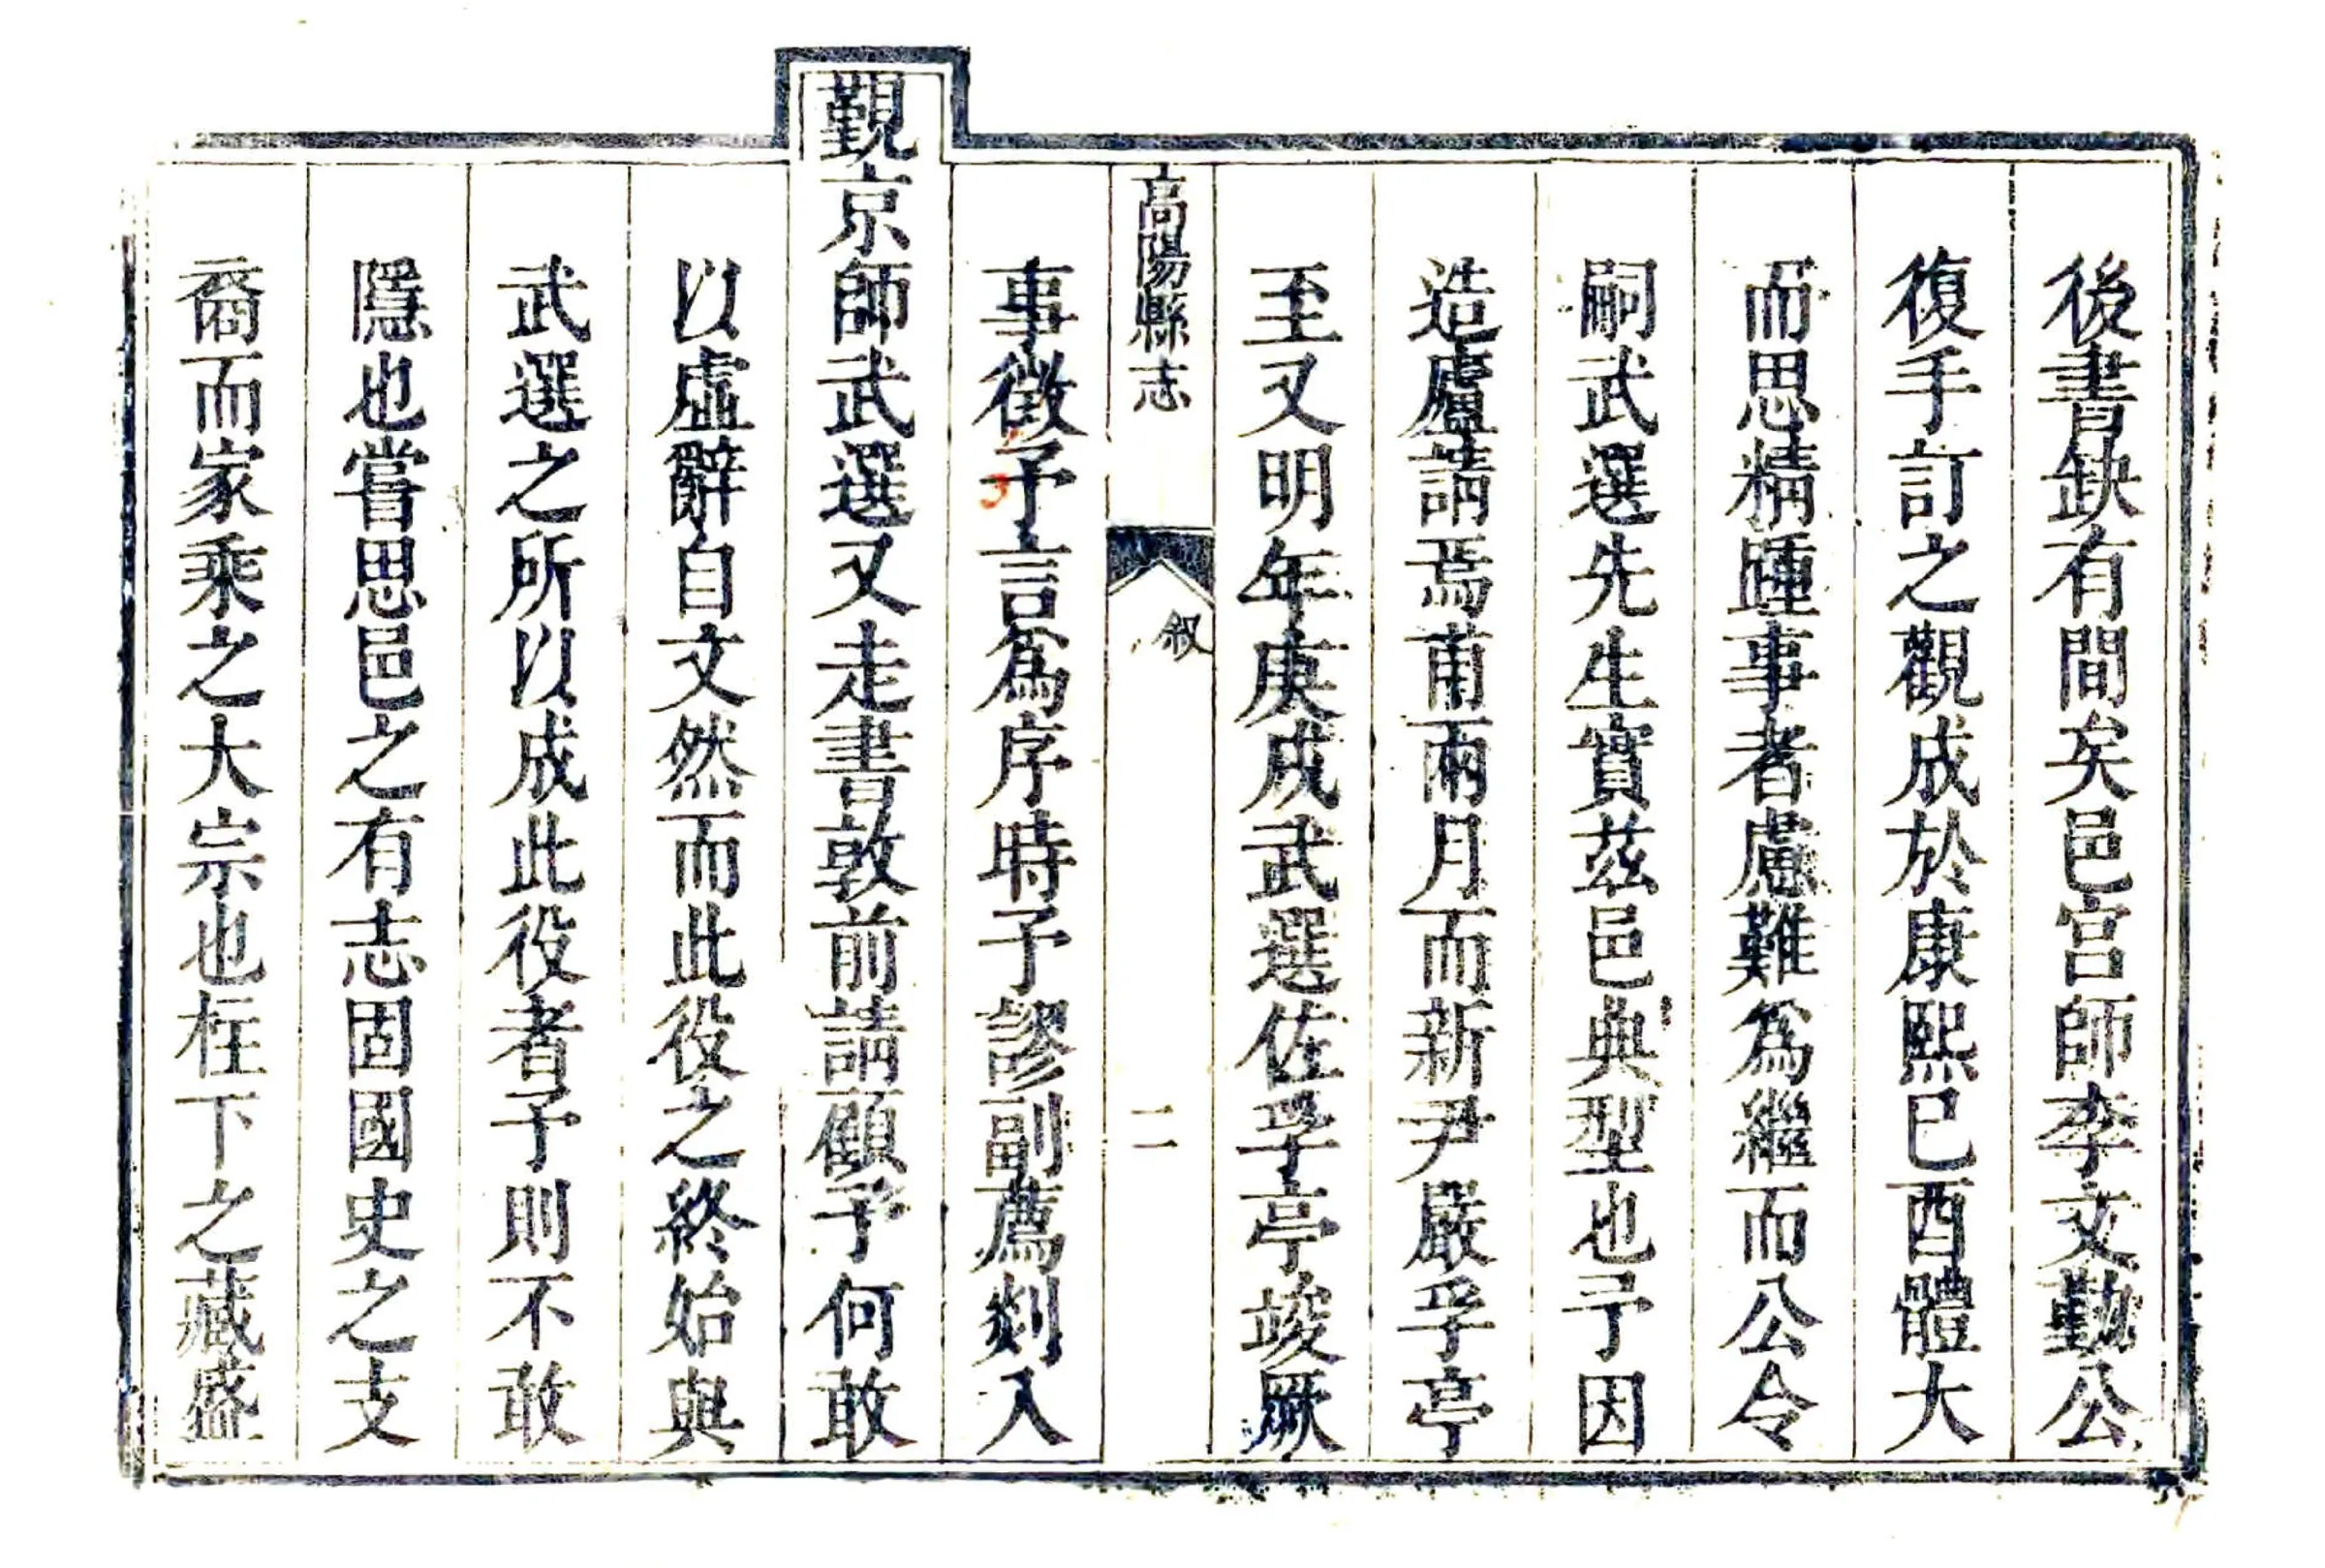 後書缺有間矣邑宫師李文勤公
復手訂之觀成於康熙已酉體大
而思精踵事者慮難爲繼而公令
嗣武選先生實茲邑典型也予因
造廬請焉甫兩月而新尹嚴孚亭
至又明年庚戌武選佐孚亭竣厥
高陽縣志
叙
二
事徵予言爲序時予謬副薦剡入
覲京師武選又走書敦前請顧予何敢
以虛辭自文然而此役之終始與
武選之所以成此役者予則不敢
隱也嘗思邑之有志固國史之支
裔而家乘之大宗也柱下之藏盛